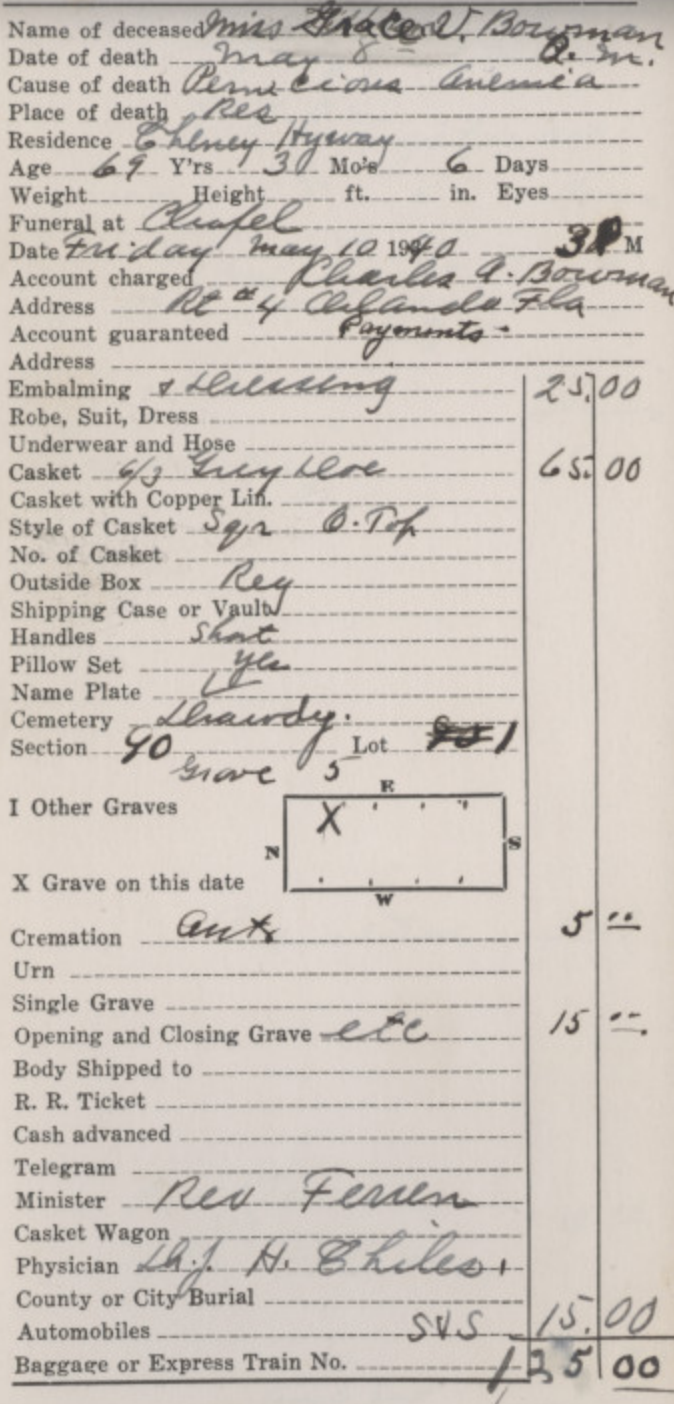 Name of deceased Miss Grace V. Bowman
Date of death May 8 A. M.
Cause of death Pernicious Anemia
Place of death Res
Residence Cheney Hyway
Age 69 Y'rs 3 Mo's 6 Days
Weight Height ft. in. Eyes
Funeral at Chapel
Date Friday May 10 1940 3 P M
Account charged Charles A. Bowman
Address Rt #4 Orlando Fla
Account guaranteed Payments -
Address
Embalming & Dressing 25.00
Robe, Suit, Dress
Underwear and Hose
Casket 6/3 Grey Doe 65.00
Casket with Copper Lin.
Style of Casket Sqr O. Top
No. of Casket
Outside Box Reg
Shipping Case or Vault
Handles Short
Pillow Set yes
Name Plate
Cemetery
Section 90 Lot 1
Grave 5
E
I Other Graves
X
N S
X Grave on this date
W
Cremation 5 00
Urn
Single Grave
Opening and Closing Grave etc 15 00
Body Shipped to
R. R. Ticket
Cash advanced
Telegram
Minister Rev Ferren
Casket Wagon
Physician H. Chiles
County or City Burial
Automobiles SVS 15.00
Baggage or Express Train No. 125 00